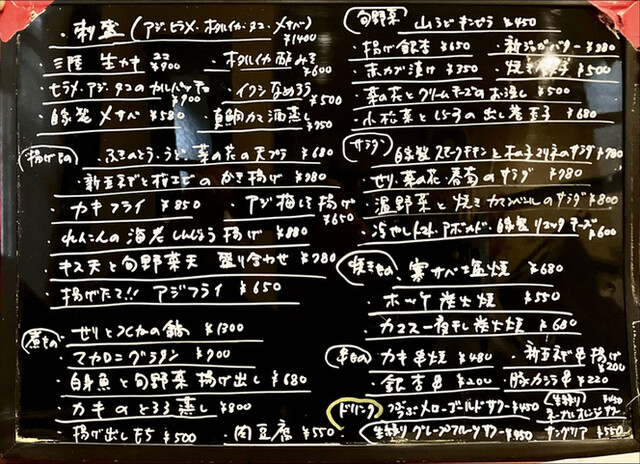 ・刺盛 (アジ・ヒラメ・ホタルイカ・タコ・〆サバ) ¥1400
・三陸 生カキ 2コ ¥900 ・ホタルイカ 酢みそ ¥600
・ヒラメ・アジ・タコのカルパッチョ ¥900 ・イワシなめろう ¥500
・自家製 〆サバ ¥580 ・真鯛カマ酒蒸し ¥750
揚げもの ・ふきのとう・うど・菜の花の天プラ ¥680
・新玉ネギと桜エビのかき揚げ ¥780
・カキフライ ¥850 ・アジ梅しそ揚げ ¥650
・れんこんの海老しんじょう揚げ ¥880
・キス天と旬野菜天 盛り合わせ ¥780
・揚げたて!! アジフライ ¥650
煮もの ・せりとつくねの鍋 ¥1300
・マカロニグラタン ¥700
・白身魚と旬野菜 揚げ出し ¥680
・カキのとろろ蒸し ¥800
・揚げ出しもち ¥500 ・肉豆腐 ¥550
旬野菜 ・山うどキンピラ ¥450
・揚げ銀杏 ¥650 ・新じゃがバター ¥380
・赤カブ漬け ¥350 ・焼き ¥500
・菜の花とクリームチーズのお浸し ¥500
・小松菜としらすの出し巻玉子 ¥680
サラダ ・自家製スモークチキンと木の子マリネのサラダ ¥780
・せり・菜の花・春菊のサラダ ¥780
・温野菜と焼きカマンベールのサラダ ¥800
・冷やしトマト アボカド 自家製リコッタチーズ ¥600
焼きもの ・寒サバ 塩焼 ¥680
・ホッケ炭火焼 ¥550
・カマス一夜干し炭火焼 ¥680
串もの ・カキ串焼 ¥480 ・新玉ネギ串揚げ ¥200
・銀杏串 ¥200 ・豚カシラ串 ¥220
ドリンク つぶつぶメローゴールドサワー ¥450 生絞り ネーブルオレンジサワー ¥450
生絞りグレープフルーツサワー ¥450 サングリア ¥550